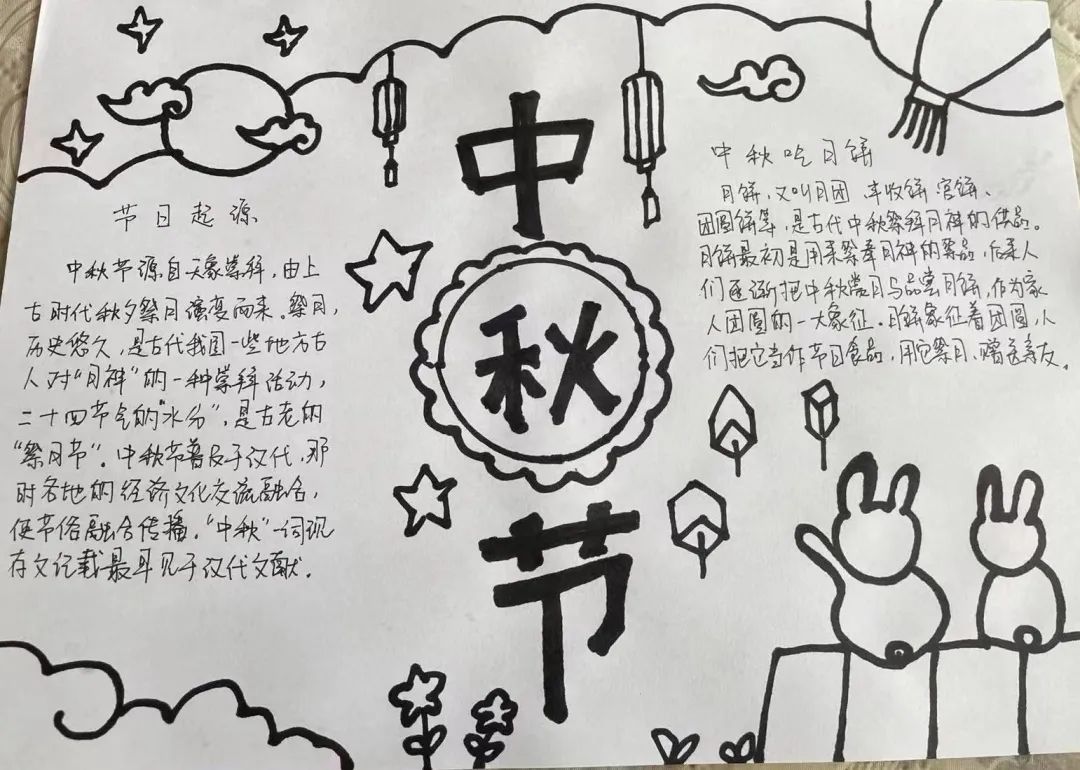 中秋节
节日起源
中秋节源自天象崇拜，由上
古时代秋夕祭月演变而来。祭月，
历史悠久，是古代我国一些地方古
人对“月神”的一种崇拜活动，
二十四节气的“水分”，是古老的
“祭月节”。中秋节普及于汉代，那
时各地的经济文化交流融合，
使节俗融合传播。“中秋”一词现
存文记载最早见于汉代文献。
中秋吃月饼
月饼，又叫月团、丰收饼、宫饼、
团圆饼等，是古代中秋祭拜月神的供品。
月饼最初是用来祭奉月神的祭品，后来人
们逐渐把中秋赏月与品尝月饼，作为家
人团圆的一大象征。月饼象征着团圆，人
们把它当作节日食品，用它祭月、赠送亲友。